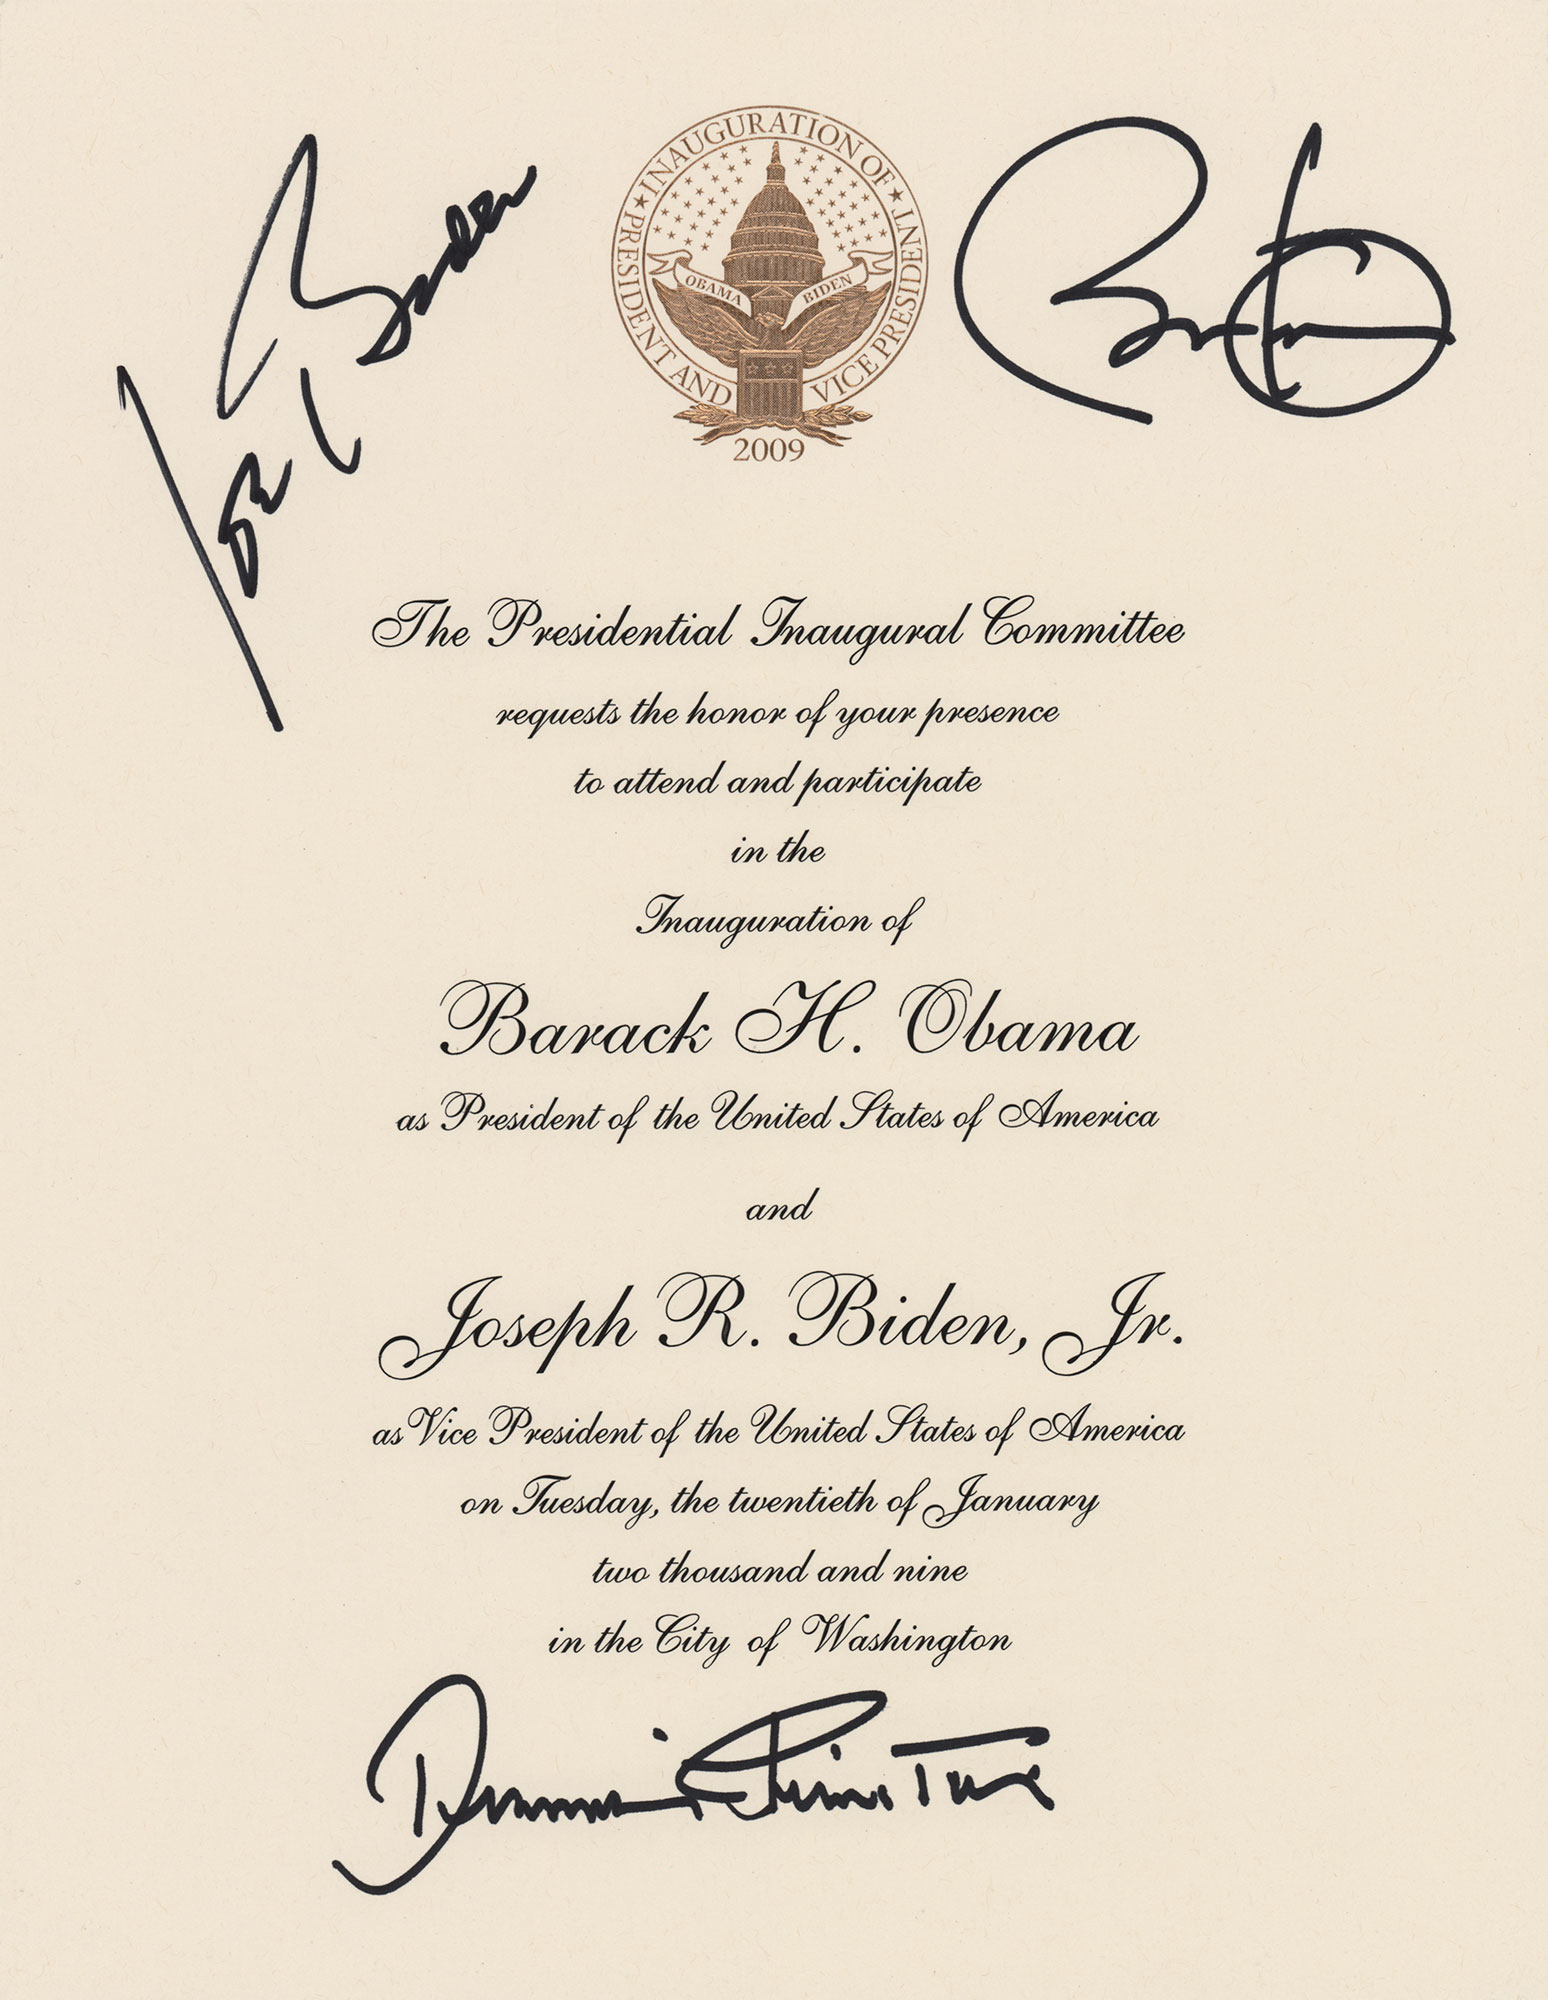 INAUGURATION OF
PRESIDENT AND VICE PRESIDENT
OBAMA BIDEN
2009
Joe Biden
The Presidential Inaugural Committee
requests the honor of your presence
to attend and participate
in the
Inauguration of
Barack H. Obama
as President of the United States of America
and
Joseph R. Biden, Jr.
as Vice President of the United States of America
on Tuesday, the twentieth of January
two thousand and nine
in the City of Washington